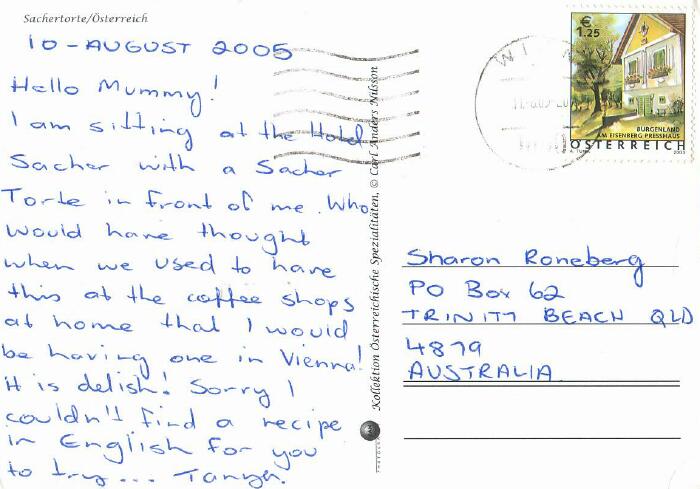 Sachertorte/Österreich
10 - AUGUST 2005
Hello Mummy!
I am sitting at the Hotel
Sacher with a Sacher
Torte in front of me. Who
would have thought
when we used to have
this at the coffee shops
at home that I would
be having one in Vienna!
It is delish! Sorry I
couldn't find a recipe
in English for you
to try... Tanya.
Kollektion Österreichische Spezialitäten, © Carl Anders Nilsson
€
1.25
BURGENLAND
AM EISENBERG PRESSHAUS
ÖSTERREICH
2003
Sharon Roneberg
PO Box 62
TRINITY BEACH QLD
4879
AUSTRALIA